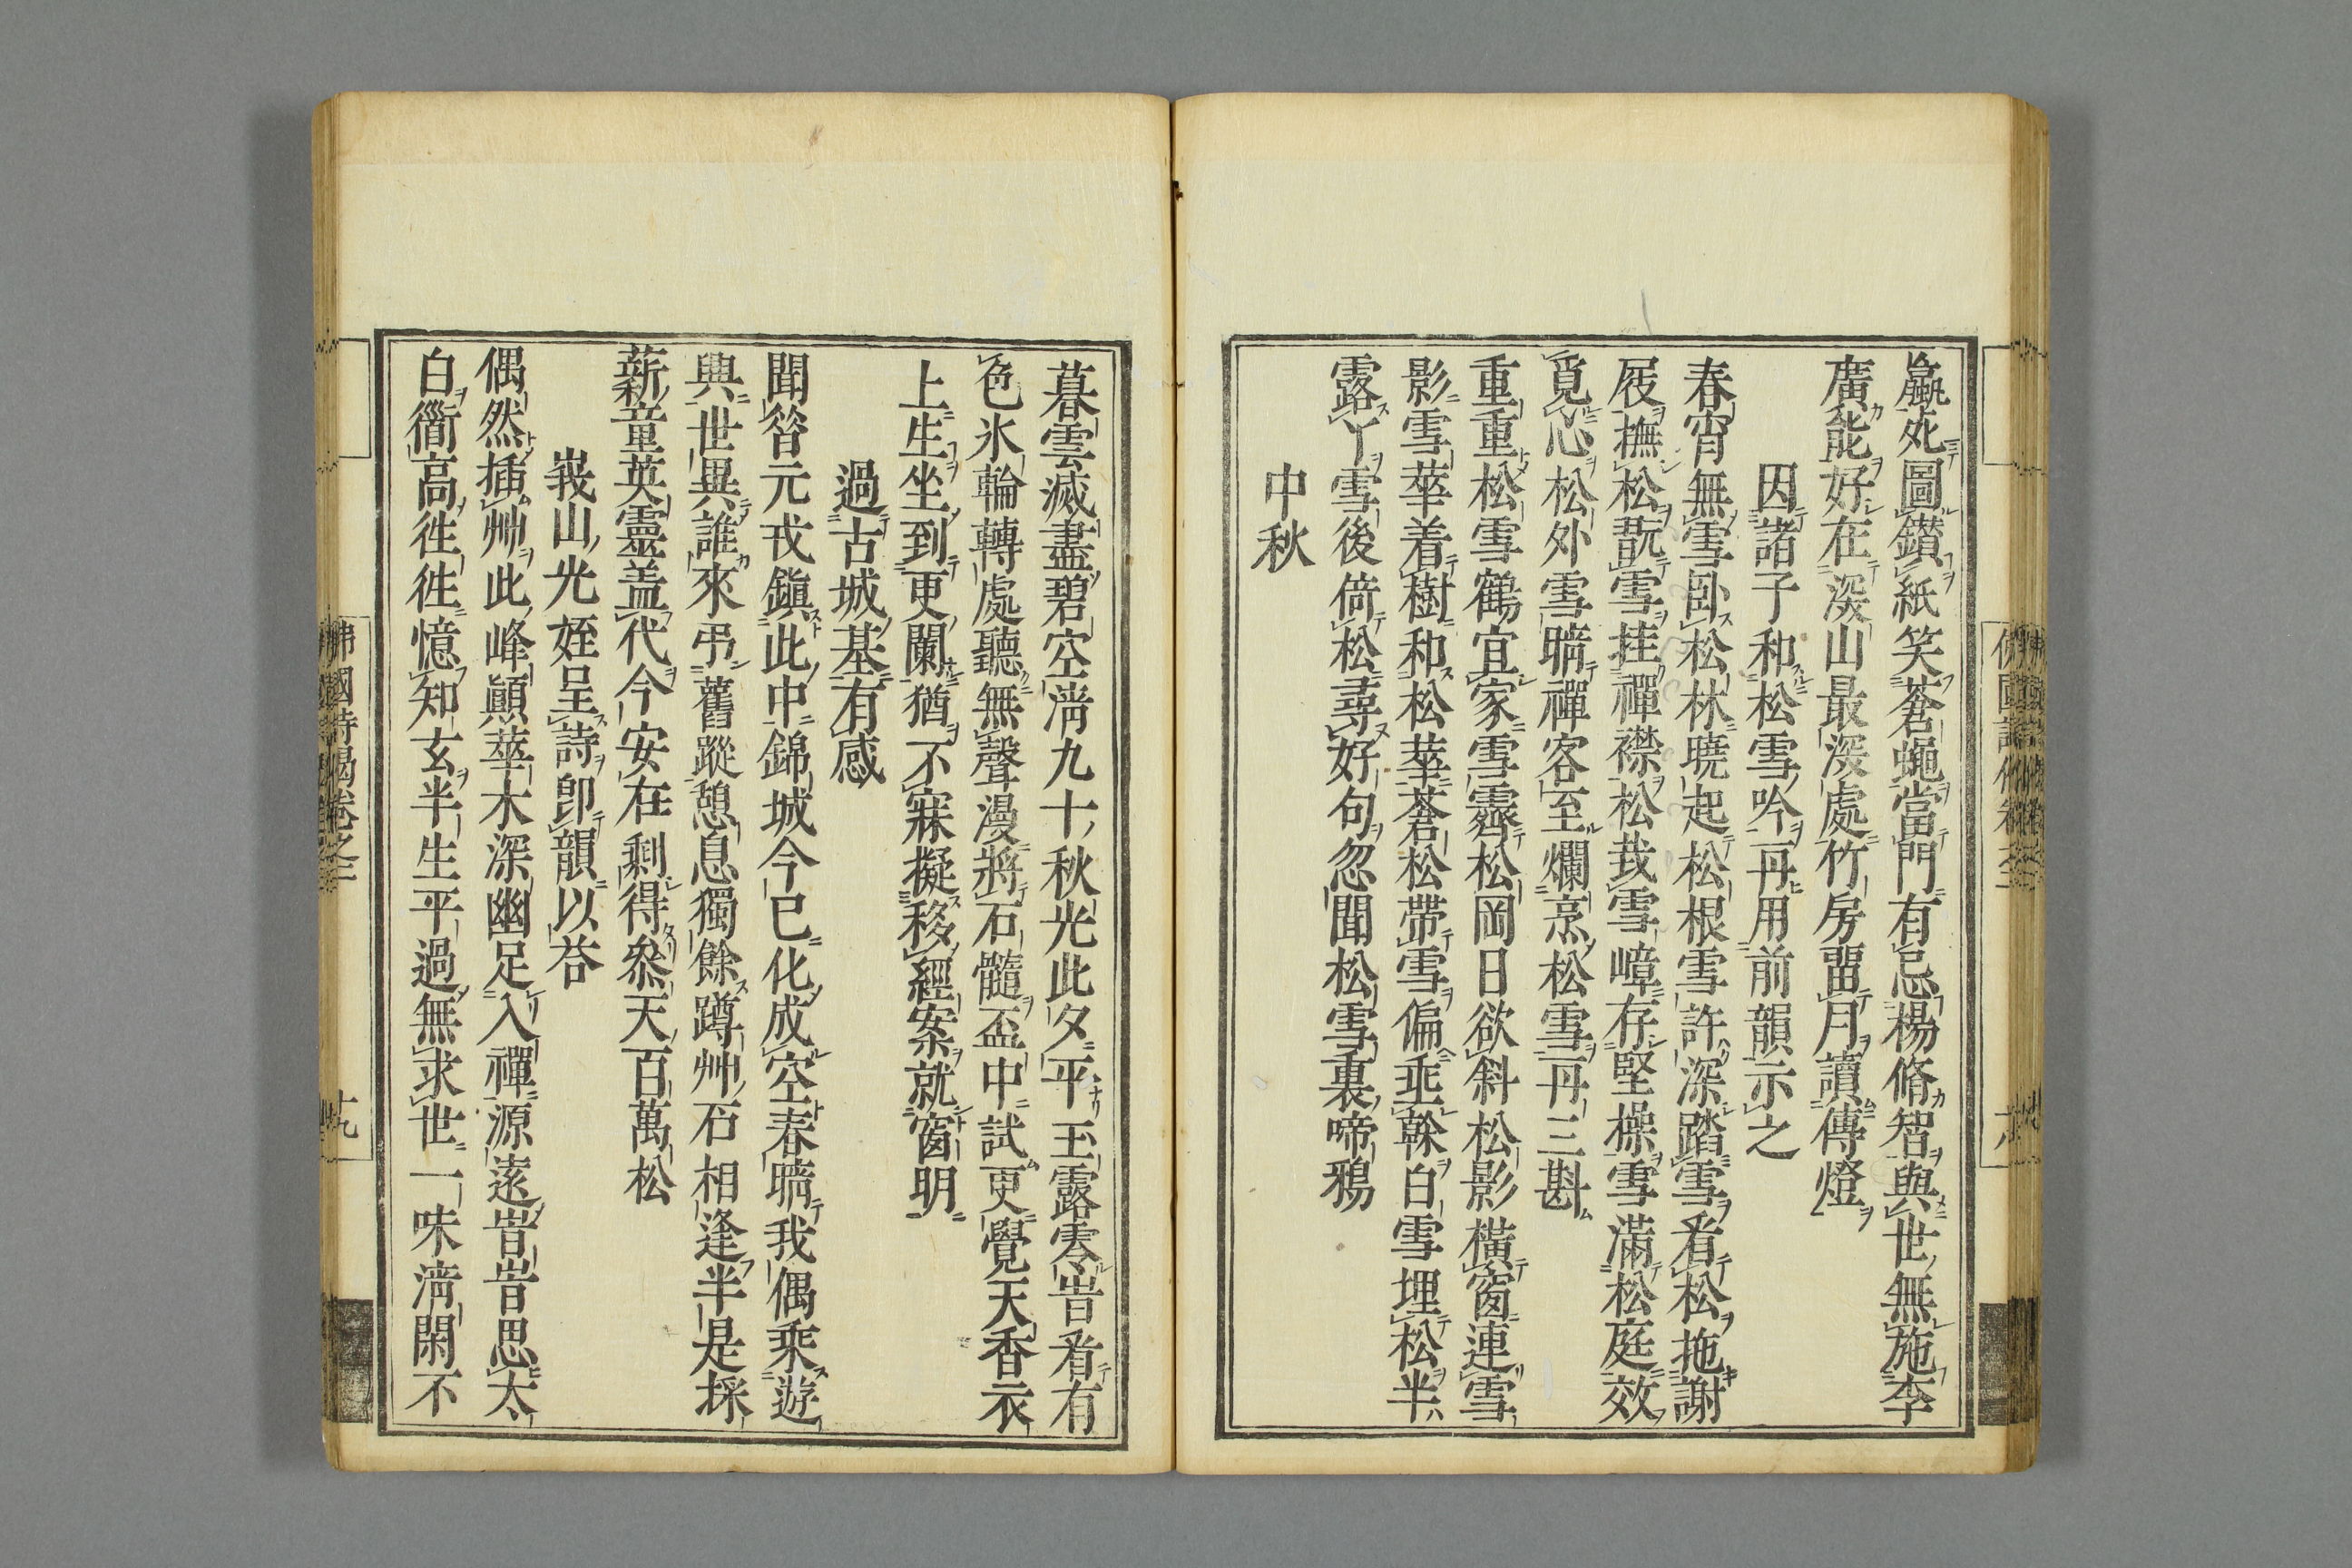 羸死圖鑚紙笑蒼蠅當門有忌楊脩智與世無施李
廣能好在深山最深處竹房畱月讀傳燈
因諸子和松雪吟再用前韻示之
春宵無雪臥松林曉起松根雪許深踏雪看松拖謝
屐撫松翫雪挂禪襟松栽雪嶂存堅操雪滿松庭效
覓心松外雪晴禪客至爛烹松雪再三斟
重重松雪鶴宜家雪霽松岡日欲斜松影橫窗連雪
影雪華着樹和松華蒼松帶雪偏乖榦白雪埋松半
露丫雪後倚松尋好句忽聞松雪裏啼鴉
中秋
暮雲滅盡碧空淸九十秋光此夕平玉露零旹看有
色氷輪轉處聽無聲漫將石髓盃中試更覺天香衣
上生坐到更闌猶不寐擬移經案就窗明
過古城基有感
聞昝元戎鎭此中錦城今已化成空春晴我偶乘遊
興世異誰來弔舊蹤憩息獨餘蹲艸石相逢半是採
薪童英靈盖代今安在剩得叅天百萬松
峩山光姪呈詩卽韻以荅
偶然插艸此峰顚華木深幽足入禪源遠旹旹思太
白衜高徃徃憶知玄半生平過無求世一味淸閑不
佛國詩偈卷之二
十九